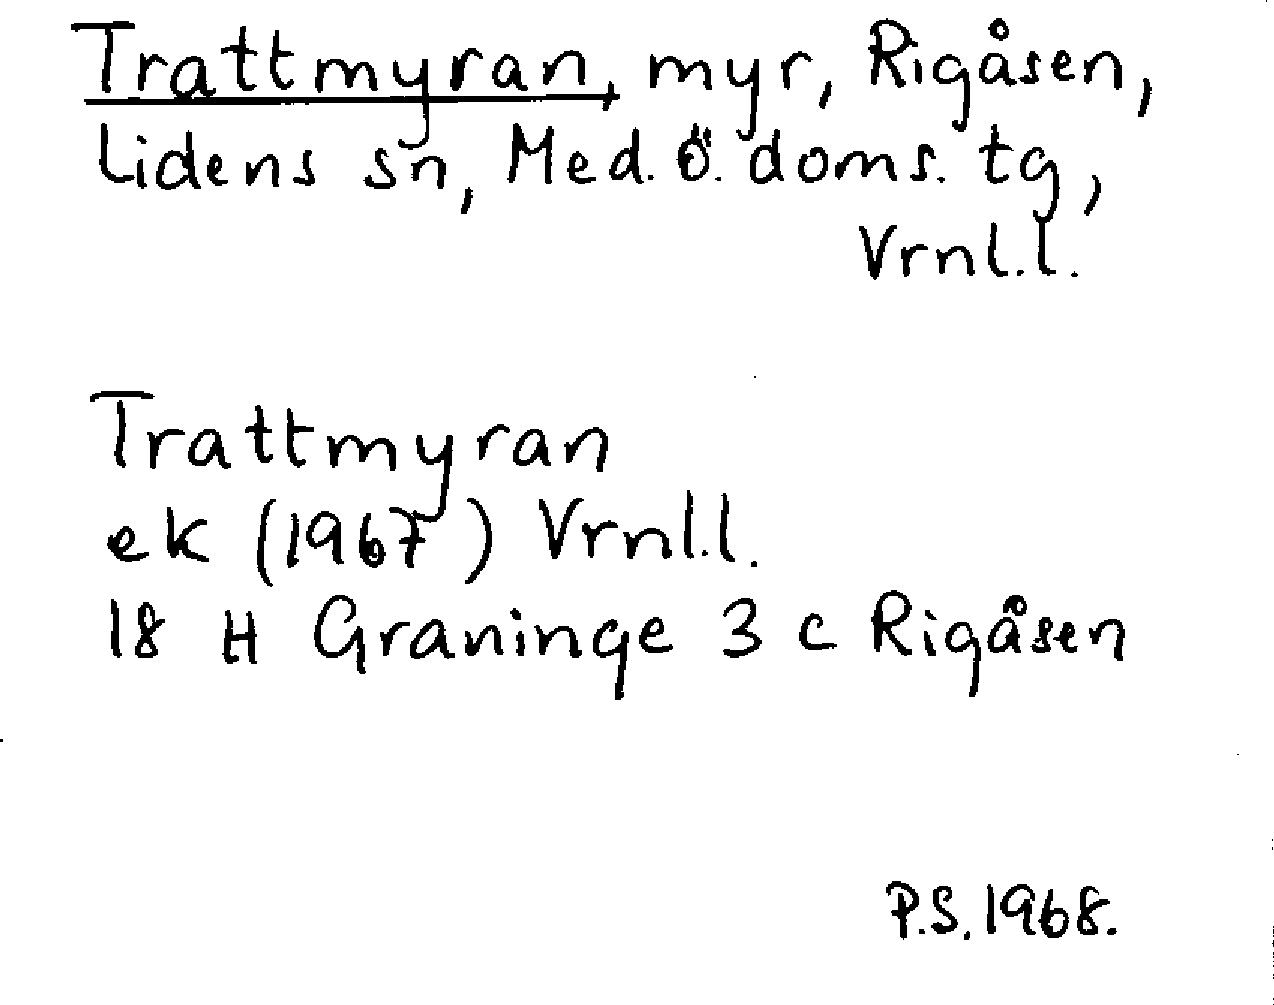 Trattmyran, myr, Rigåsen,
Lidens sn, Med. ö. doms. tg,
Vrnl.l.
Trattmyran
ek (1967) Vrnl.l.
18 H Graninge 3 c Rigåsen
P.S. 1968.